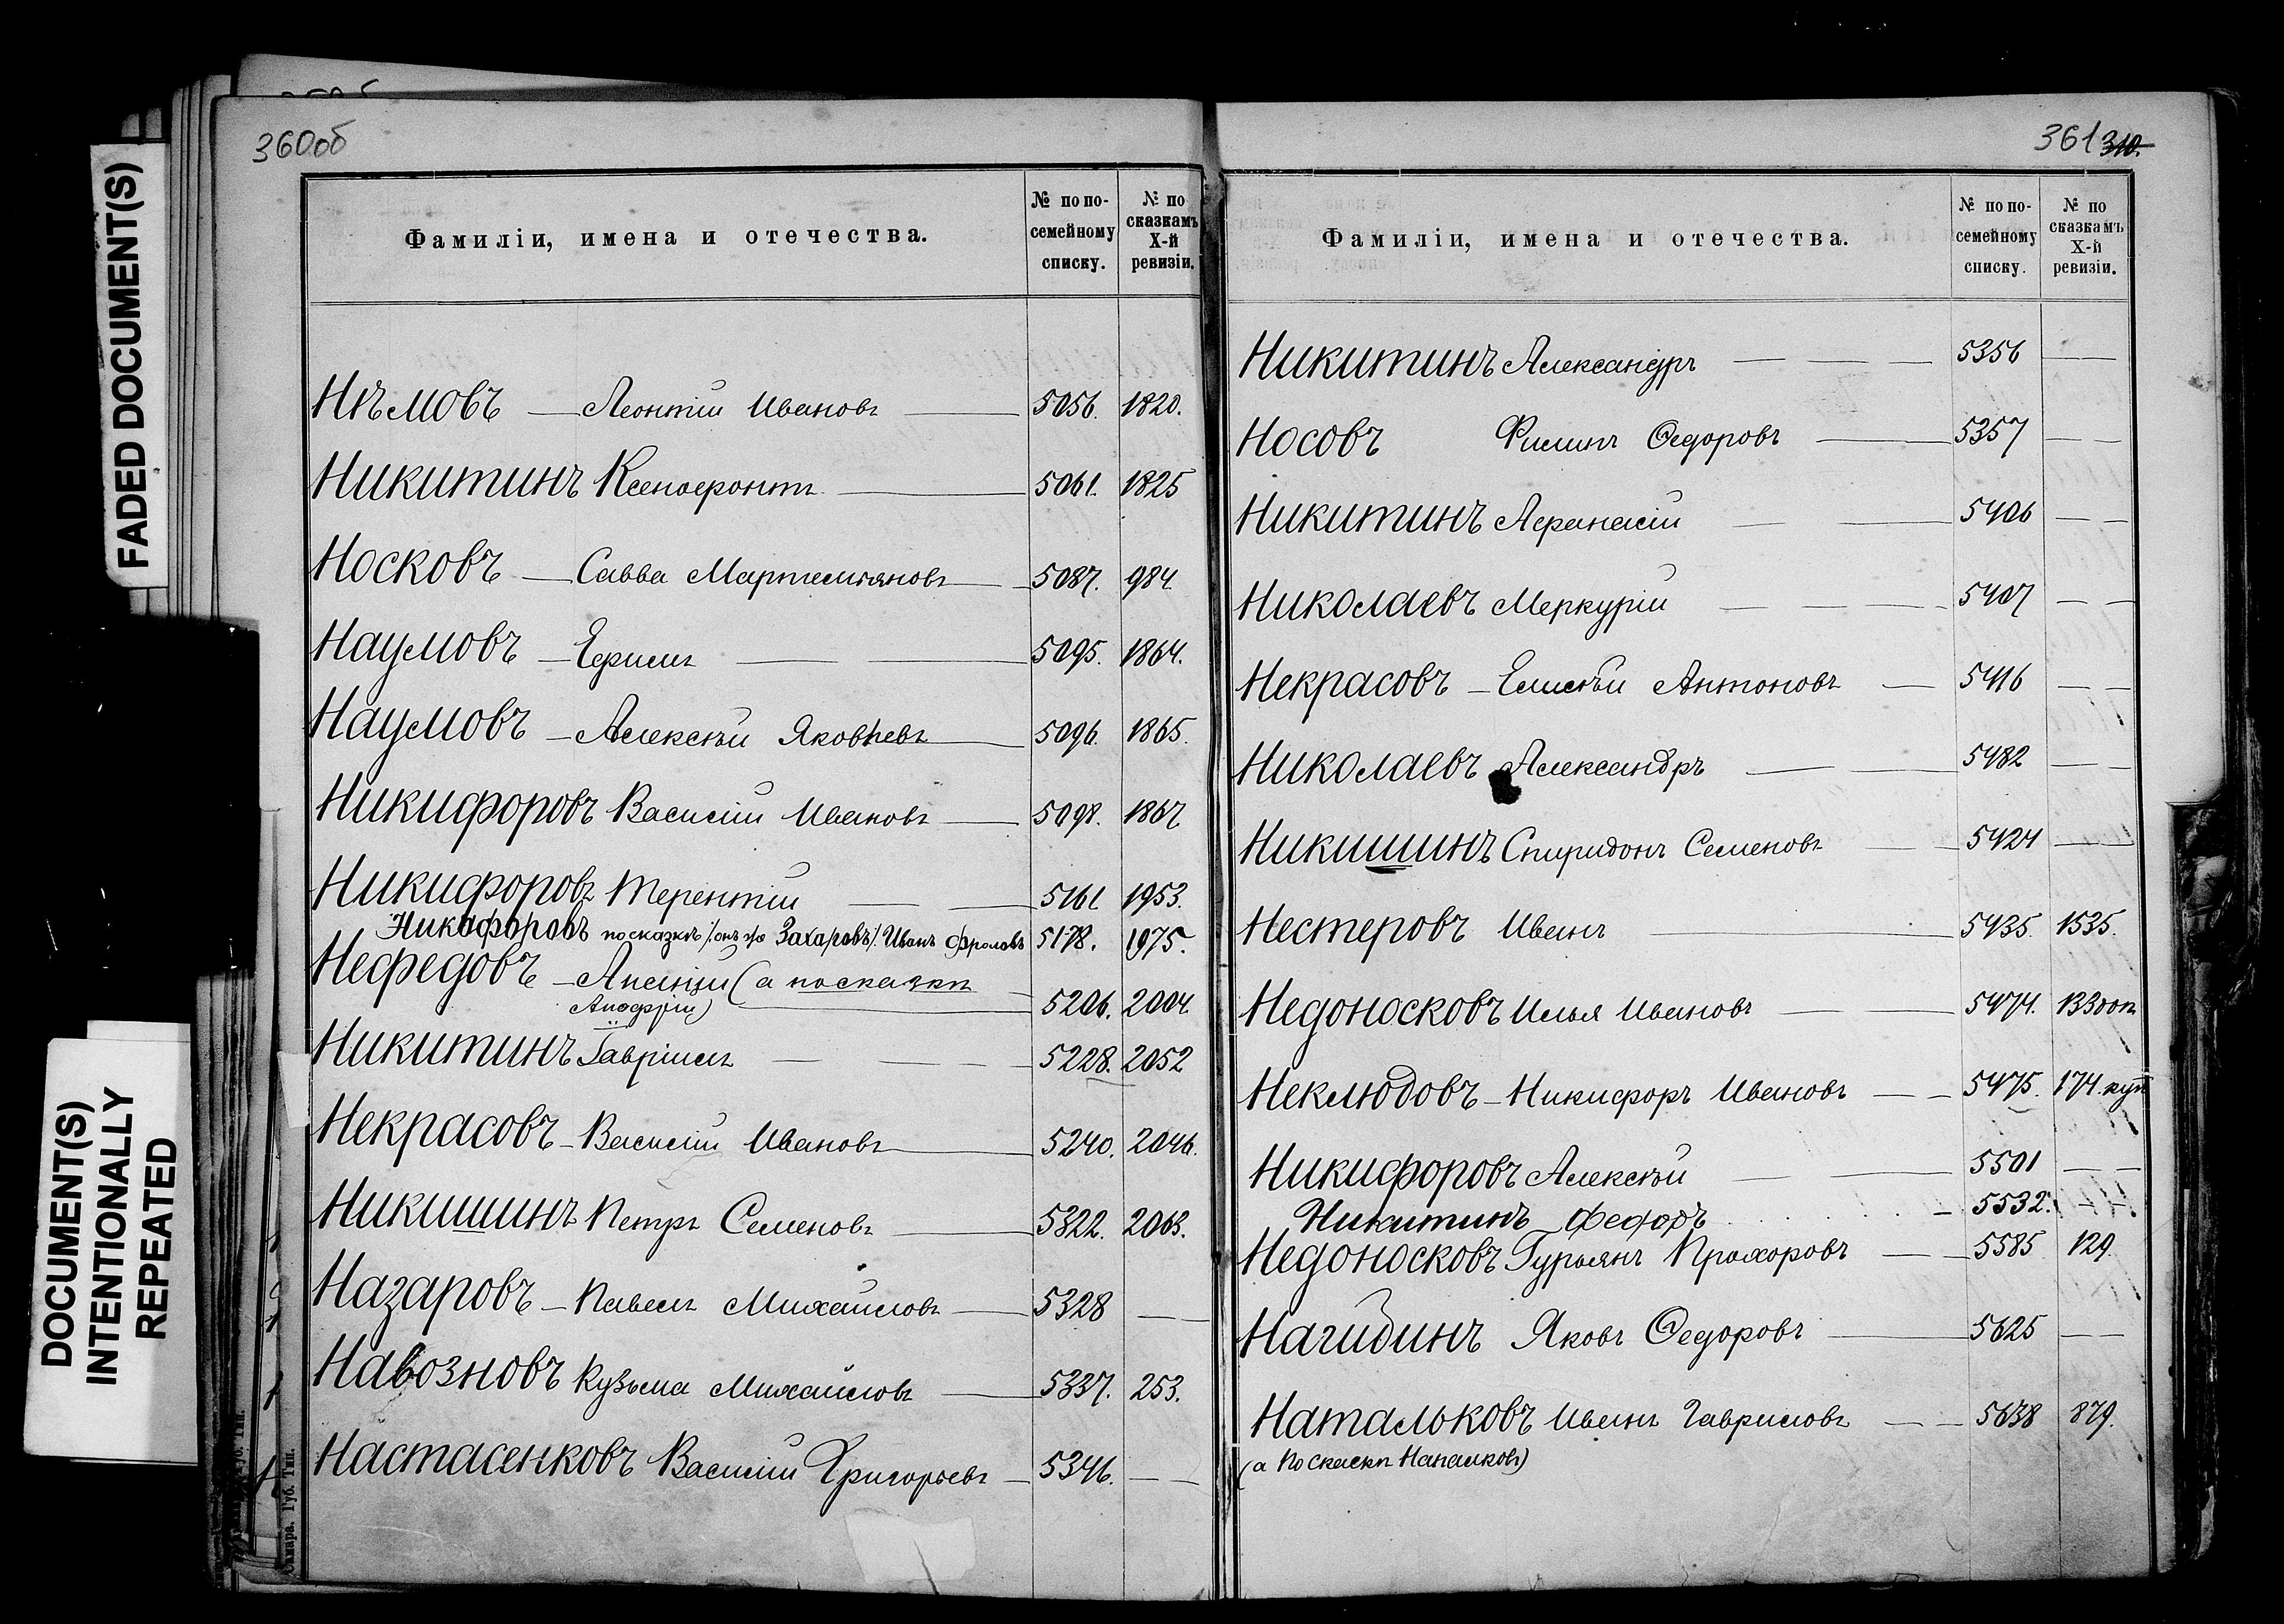 FADED DOCUMENT(S)
DOCUMENT(S)
INTENTIONALLY
REPEATED
360об
Фамиліи, имена и отечества.
№ по по-
семейному
списку.
№ по
сказкамъ
X-й
ревизіи.
Нѣмовъ — Леонтій Ивановъ — 5056. 1820.
Никитинъ Ксенофонтъ — 5061. 1825
Носковъ — Савва Мартемьяновъ — 5087. 984
Наумовъ — Ефимъ — — 5095. 1864.
Наумовъ — Алексѣй Яковлевъ — 5096. 1865.
Никифоровъ Василій Ивановъ — 5098. 1867
Никифоровъ Терентій — — 5161 1953.
Никифоровъ по сказкѣ /: онъ же Захаровъ /: Иванъ Фроловъ 5178. 1975.
Нефедовъ — (а по сказкѣ
5206. 2004
Никитинъ Гавріилъ — — — 5228. 2052
Некрасовъ — Василій Ивановъ — 5240. 2046.
Никишинъ Петръ Семеновъ — 5322. 2063.
Назаровъ — Павелъ Михайловъ — 5328 — —
Навозновъ Кузьма Михайловъ — 5337. 253.
Настасенковъ Василій Григорьевъ — 5346. — —
Самара. Губ. Тип.
361 310.
Фамиліи, имена и отечества.
№ по по-
семейному
списку.
№ по
сказкамъ
X-й
ревизіи.
Никитинъ Александръ — — — 5356 — —
Носовъ Филипъ Ѳедоровъ — 5357 — —
Никитинъ Афанасій — — 5406 — —
Николаевъ Меркурій — — — 5407 — —
Некрасовъ — Елисѣй Антоновъ — 5416 — —
Николаевъ Александръ — — 5482 — —
Никишинъ Спиридонъ Семеновъ — — 5424 — —
Нестеровъ Иванъ — 5435. 1535.
Недоносковъ Илья Ивановъ — — 5474. 1330
Неклюдовъ — Никифоръ Ивановъ — — 5475. 174. куп
Никифоровъ Алексѣй — — 5501 — —
Никитинъ Федоръ — 5532. — —
Недоносковъ Гурьянъ Прохоровъ — — 5585 129.
Нагидинъ Яковъ Ѳедоровъ — 5625 — —
Натальковъ Иванъ Гавриловъ — — 5638 879.
(а по сказкѣ Напалковъ)